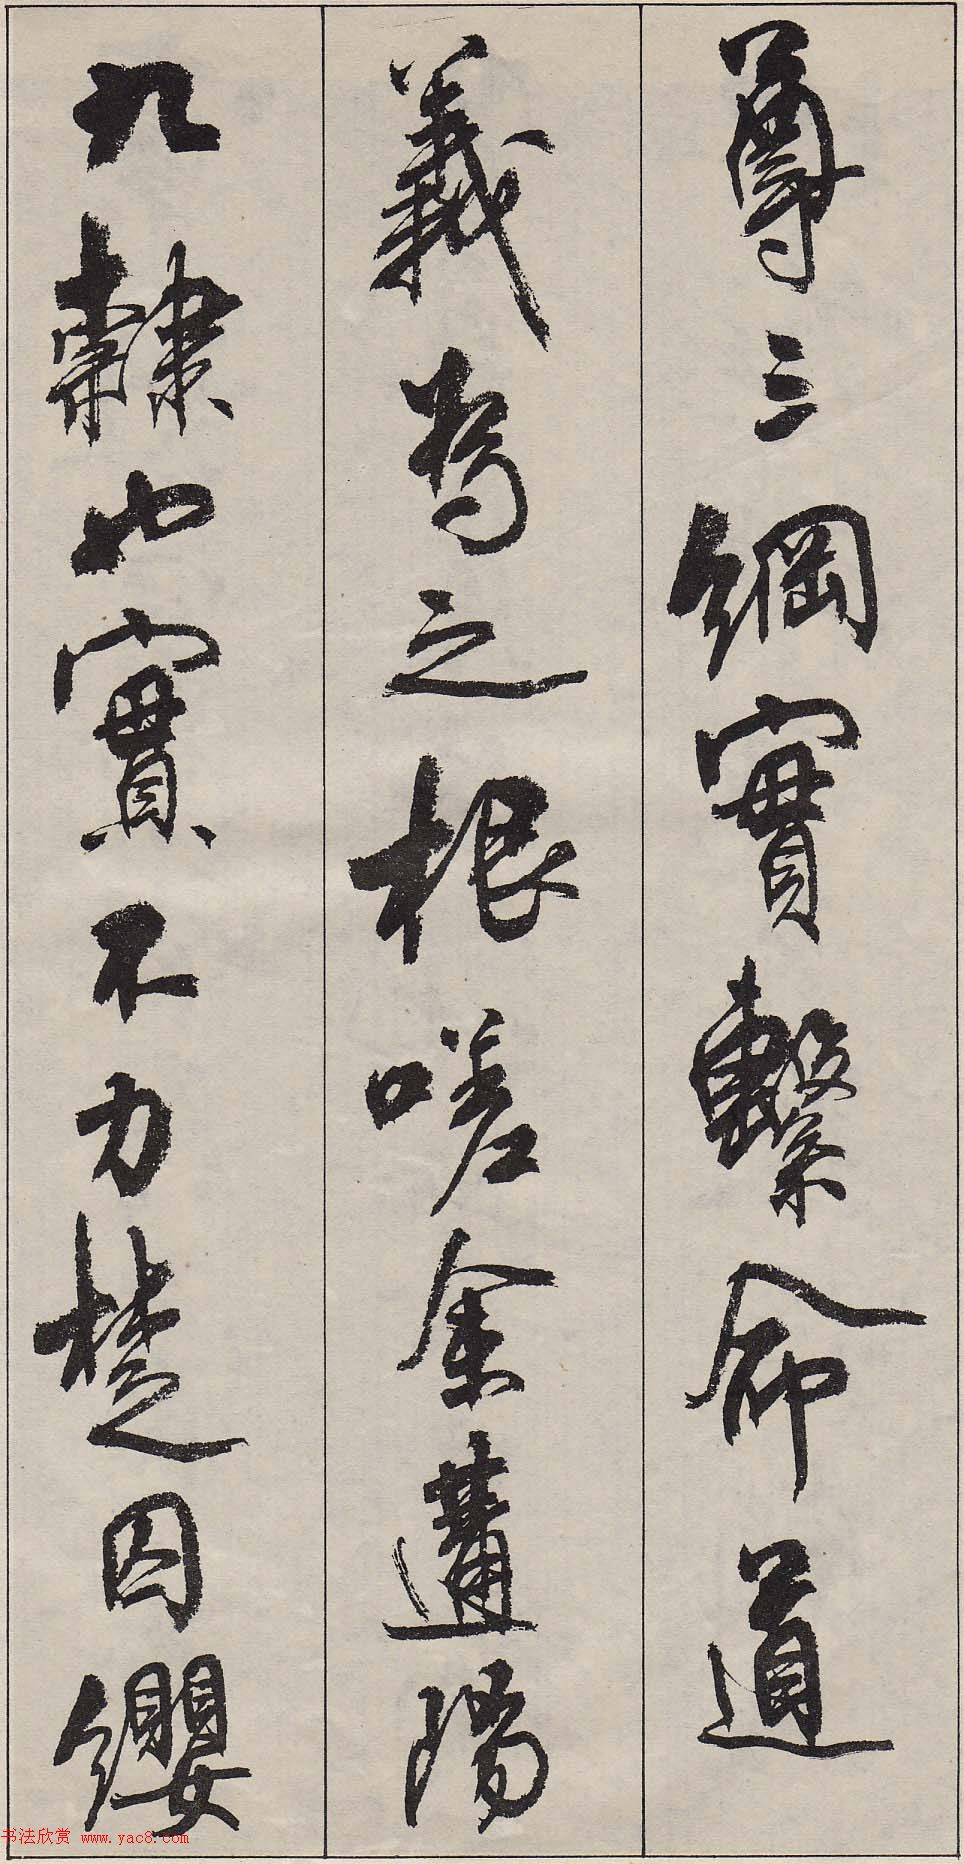 尊三綱實繫命道
義為之根嗟余遘陽
九隸也實不力楚囚纓
书法欣赏 www.yac8.com